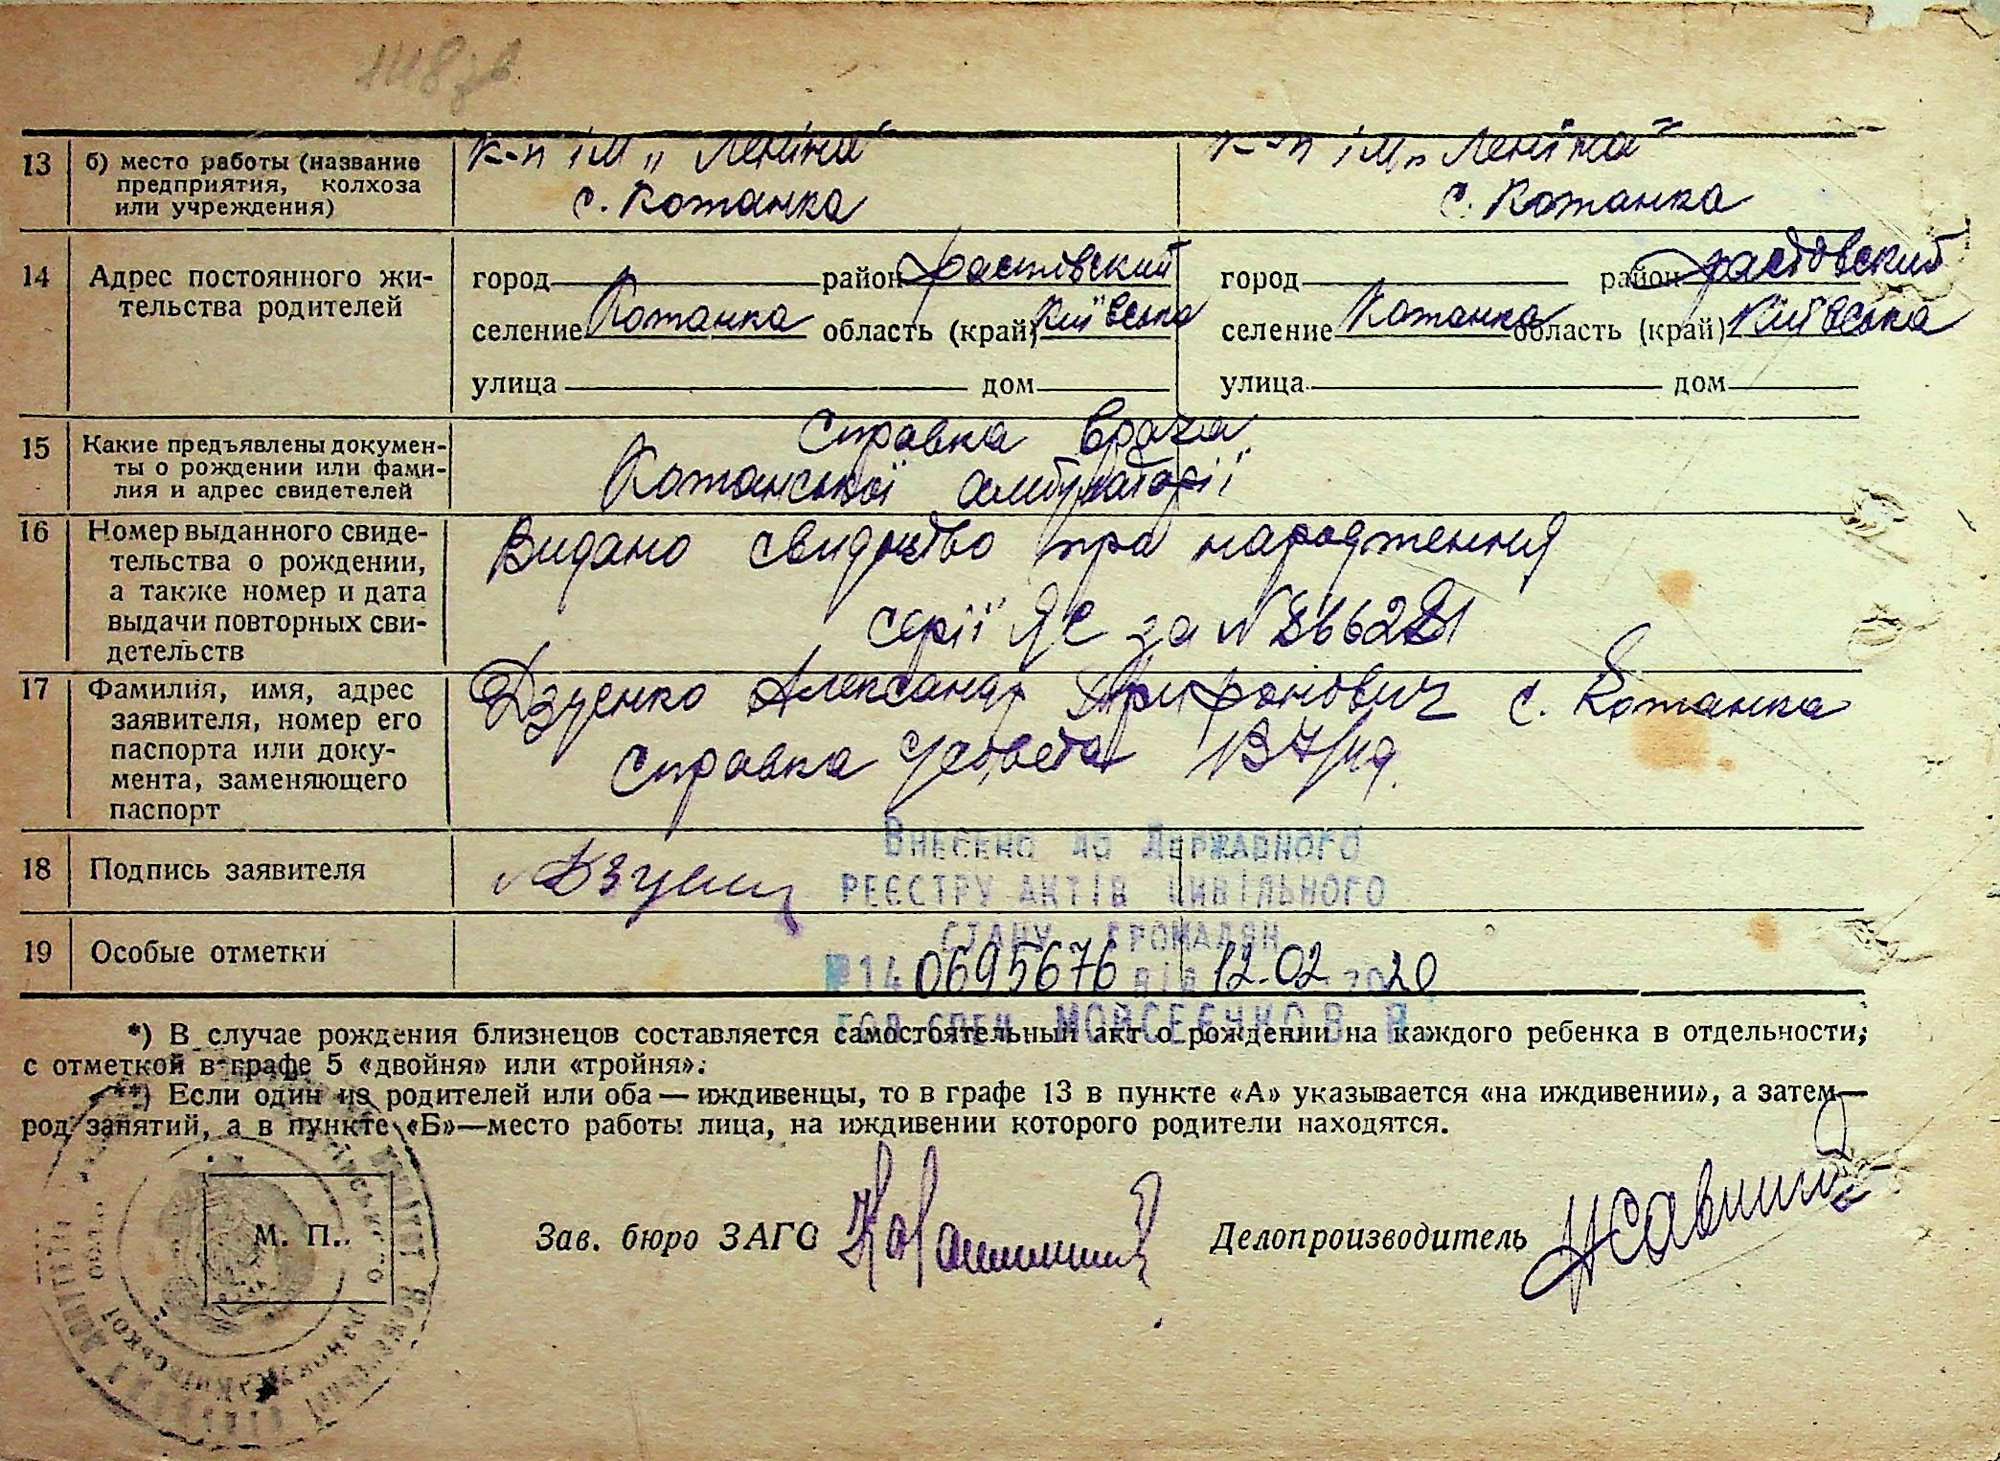 13 б) место работы (название предприятия, колхоза или учреждения)
к-п ім „Леніна"
с. Кожанка
к-п ім „Леніна"
с. Кожанка
14 Адрес постоянного жительства родителей
город район Фастовский
селение Кожанка область (край) Київська
улица дом
город район Фастовский
селение Кожанка область (край) Київська
улица дом
15 Какие предъявлены документы о рождении или фамилия и адрес свидетелей
Справка врача
Кожанської амбулаторії
16 Номер выданного свидетельства о рождении, а также номер и дата выдачи повторных свидетельств
Видано свидоцтво про народження
серії ЯС за №
17 Фамилия, имя, адрес заявителя, номер его паспорта или документа, заменяющего паспорт
Дзуенко Александр Трифонович с. Кожанка
Справка
18 Подпись заявителя
19 Особые отметки
Внесено до Державного
реєстру актів цивільного
стану громадян
№14 0695676 від 12.02 2020
гол спец Мойсеєнко В
*) В случае рождения близнецов составляется самостоятельный акт о рождении на каждого ребенка в отдельности,
с отметкой в графе 5 «двойня» или «тройня».
**) Если один из родителей или оба — иждивенцы, то в графе 13 в пункте «А» указывается «на иждивении», а затем—
род занятий, а в пункте «Б»—место работы лица, на иждивении которого родители находятся.
М. П.
Зав. бюро ЗАГС
Делопроизводитель